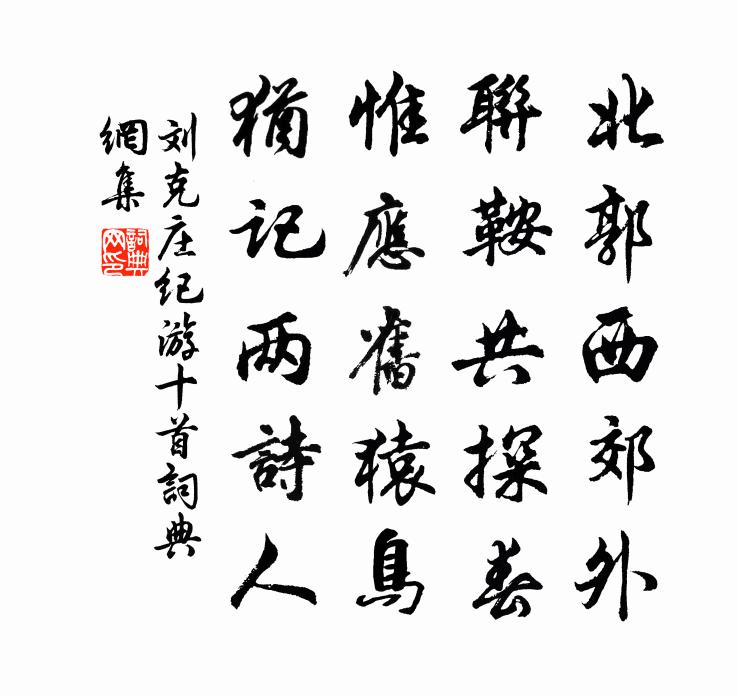 北郭西郊外
聯鞍共探春
惟應舊猿鳥
猶记两詩人
刘克庄纪游十首詞典
網集
詞典网印